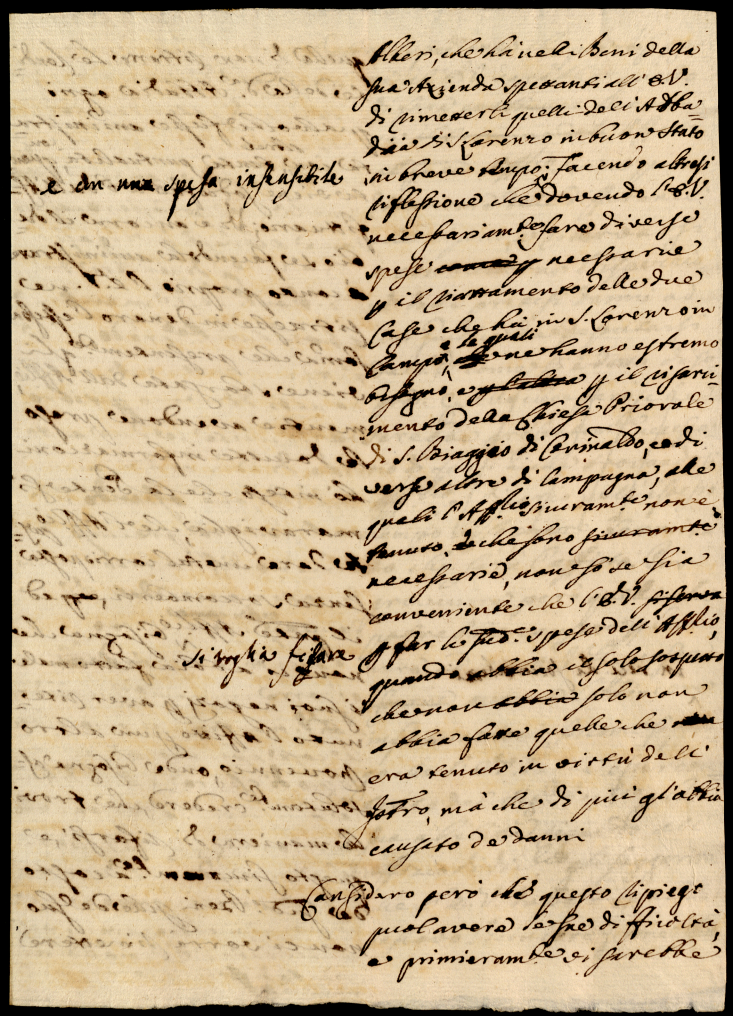 Alberi, che hà nelli Beni della
sua Azienda spettanti all' E.V.
di rimetterli quelli dell' Abba-
dia di S. Lorenzo in buon stato
e con una spesa insensibile
in breve tempo; Facendo altresi
riflessione che dovendo l' E.V.
necessariamte fare diverse
spese necessarie
p il riattamento delle due
Case che hà in S. Lorenzo in
Campo, le quali ne hanno estremo
bisogno, e p il risarci-
mento della Chiesa Priorale
di S. Biaggio di Corinaldo, e di
verse altre di Campagna, alle
quali l' Affio sicuramte non è
tenuto, e che sono sicuramte
necessarie, non sò se sia
conveniente che l' E.V.
si voglia fidare
p far le sude spese dell' Affio,
quando abbia il solo sospetto
che non abbia solo non
abbia fatte quelle che
era tenuto in virtù dell'
Istro, mà che di più gl' abbia
causato de danni
Considero però che questo ripiego
puol avere le sue difficoltà,
e primieramte vi sarebbe